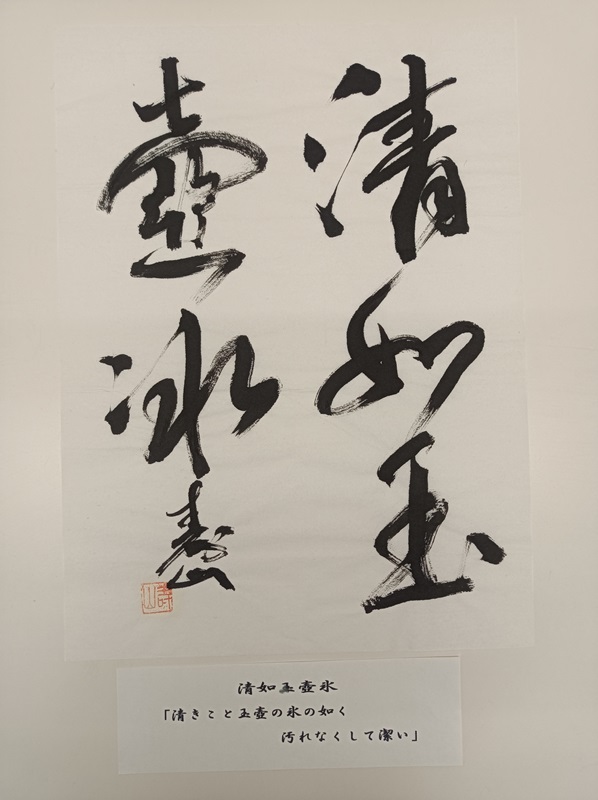 清如玉
壺氷
寿山
壽山
清如玉壺氷
「清きこと玉壺の氷の如く
汚れなくして潔い」